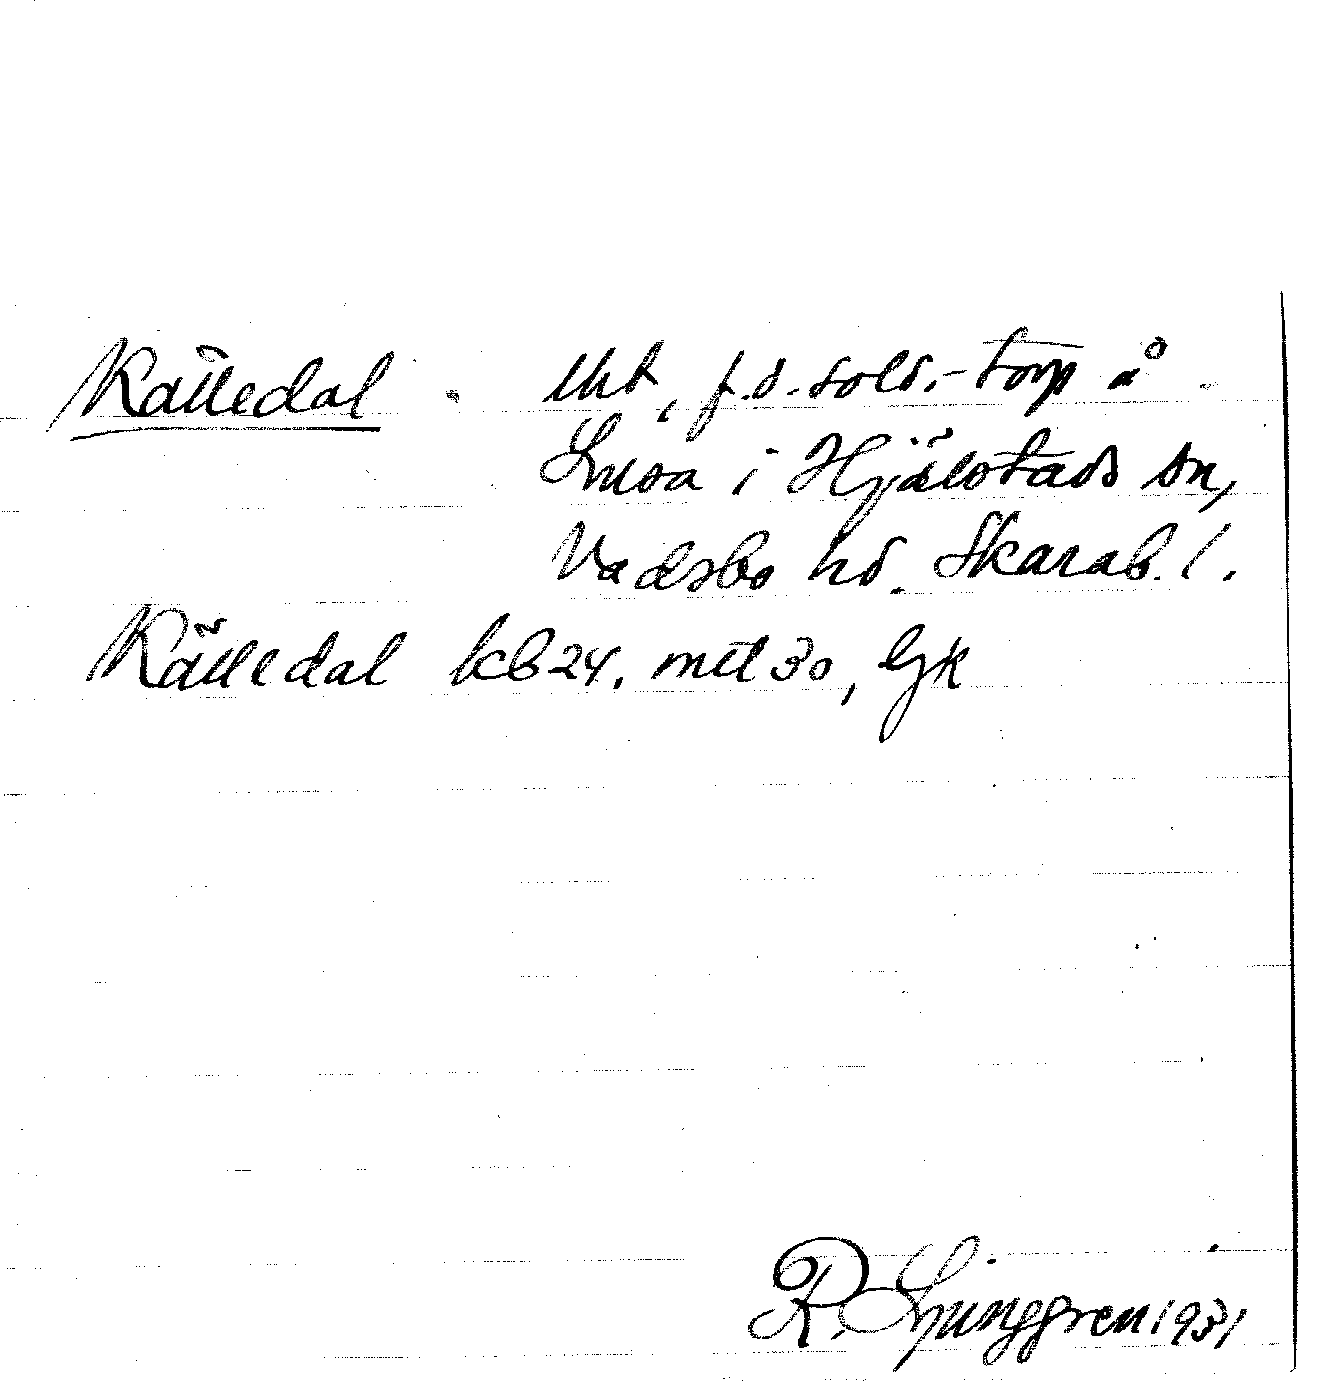 Källedal . lht, f.d. sold.-torp å
i Hjälstads sn,
Vadsbo hd. Skarab. l.
Källedal kb 24. mtl 30, Gk
R. Ljunggren 1931